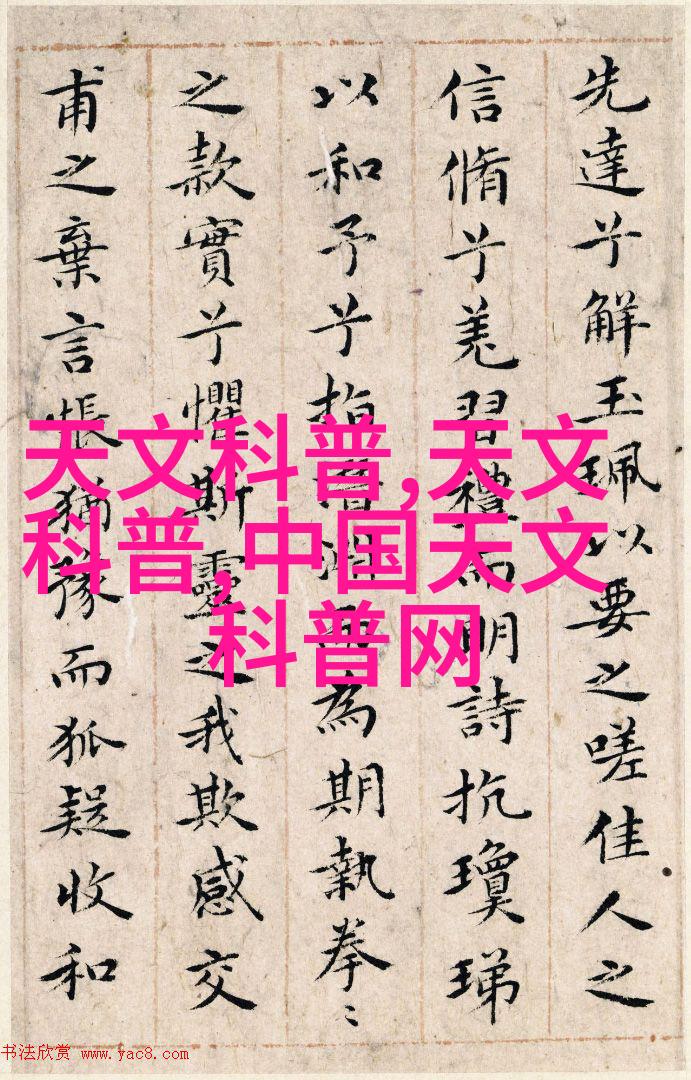 先達兮解玉珮以要之嗟佳人之
信脩兮羌習禮而明詩抗瓊珶
以和予兮指潛淵而為期執拳〻
之款實兮懼斯靈之我欺感交
甫之棄言悵猶豫而狐疑收和
天文科普,天文
科普,中国天文
科普网
书法欣赏 www.yac8.com